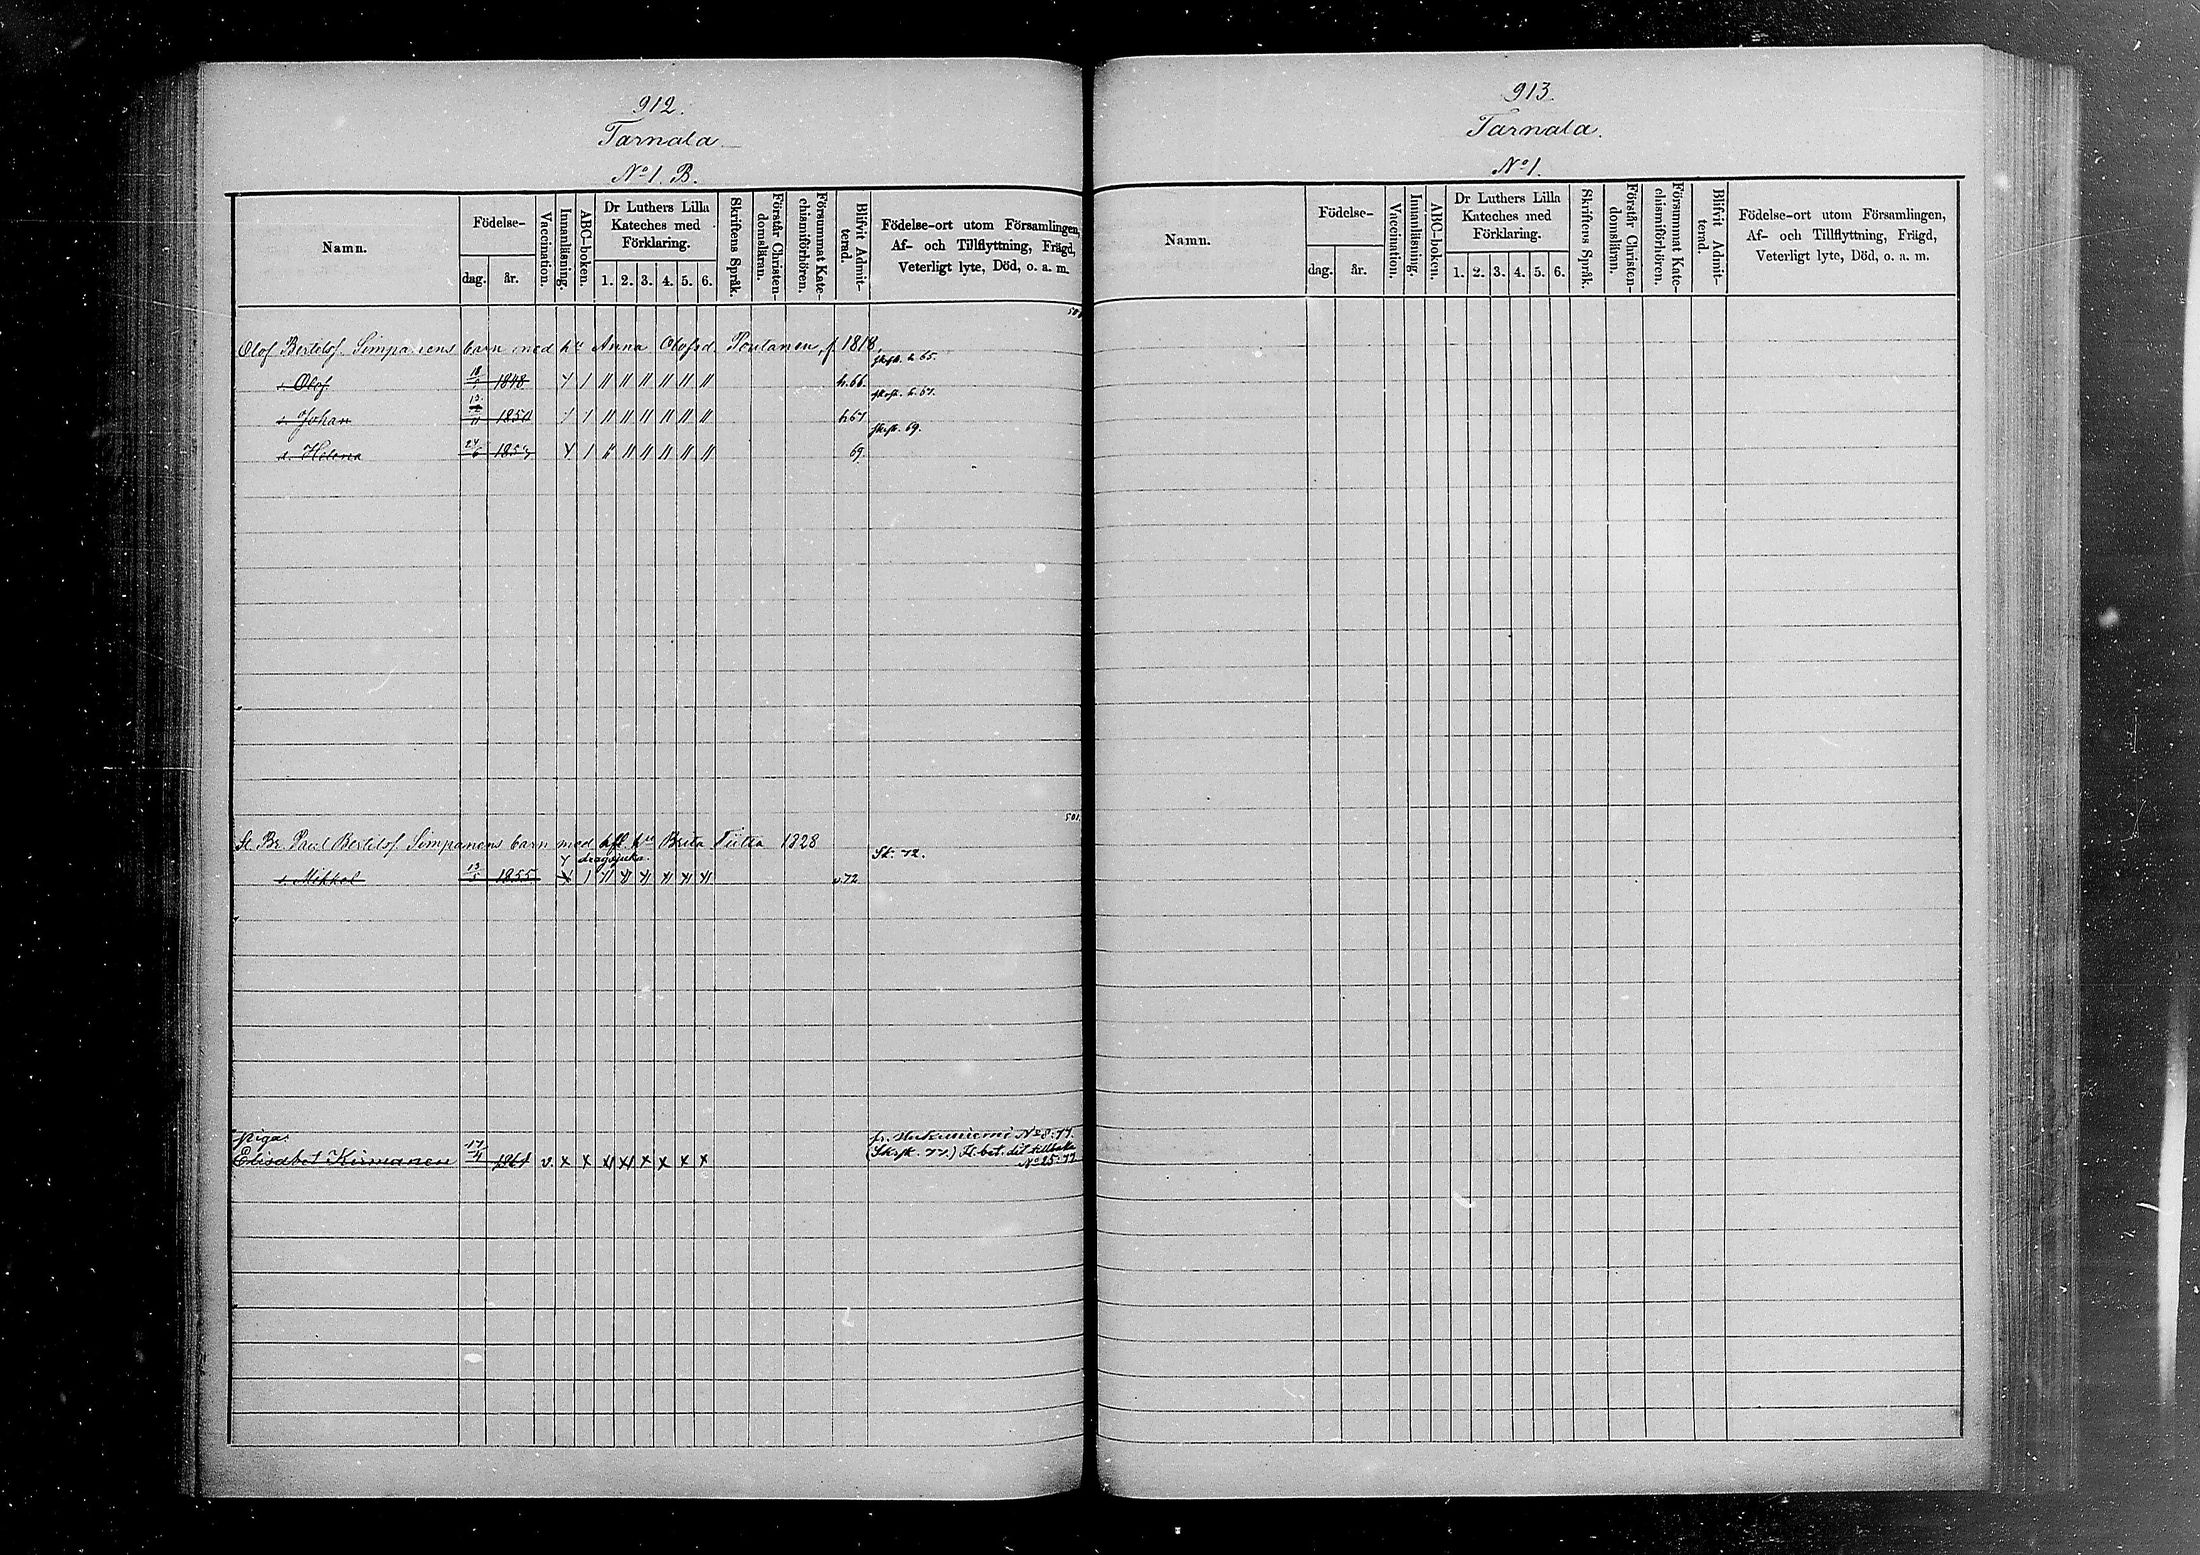 912.
Tarnala
No 1. B.
Namn.
Födelse-
dag. år.
Vaccination.
Innanläsning.
ABC-boken.
Dr Luthers Lilla
Kateches med
Förklaring.
1. 2. 3. 4. 5. 6.
Skriftens Språk.
Förstår Christen-
domsläran.
Försummat Kate-
chismiförhören.
Blifvit Admit-
terad.
Födelse-ort utom Församlingen,
Af- och Tillflyttning, Frägd,
Veterligt lyte, Död, o. a. m.
Olof Bertilsf. Simpanens barn med hu Anna Olofsd. f. 1818,
skrsk. h. 65.
s. Olof 1848 h. 66.
s. Johan 11 1850 h. 67
skrsk. 69.
d. Helena 24/6 1854 69.
501.
St. Br. Paul Bertilsf. Simpanens barn med hu Brita Tiitta 1828
Sk. 72.
s. Mikkel 1855 v. 72
Piga:
Elisabet Kirmanen 17/4 1861 v. x x x x x x x x
No 8: 77.
(Skrsk. 77.) H. bet. dit tillbaka
No 25: 77.
913.
Tarnala.
No 1.
Namn.
Födelse-
dag. år.
Vaccination.
Innanläsning.
ABC-boken.
Dr Luthers Lilla
Kateches med
Förklaring.
1. 2. 3. 4. 5. 6.
Skriftens Språk.
Förstår Christen-
domsläran.
Försummat Kate-
chismiförhören.
Blifvit Admit-
terad.
Födelse-ort utom Församlingen,
Af- och Tillflyttning, Frägd,
Veterligt lyte, Död, o. a. m.